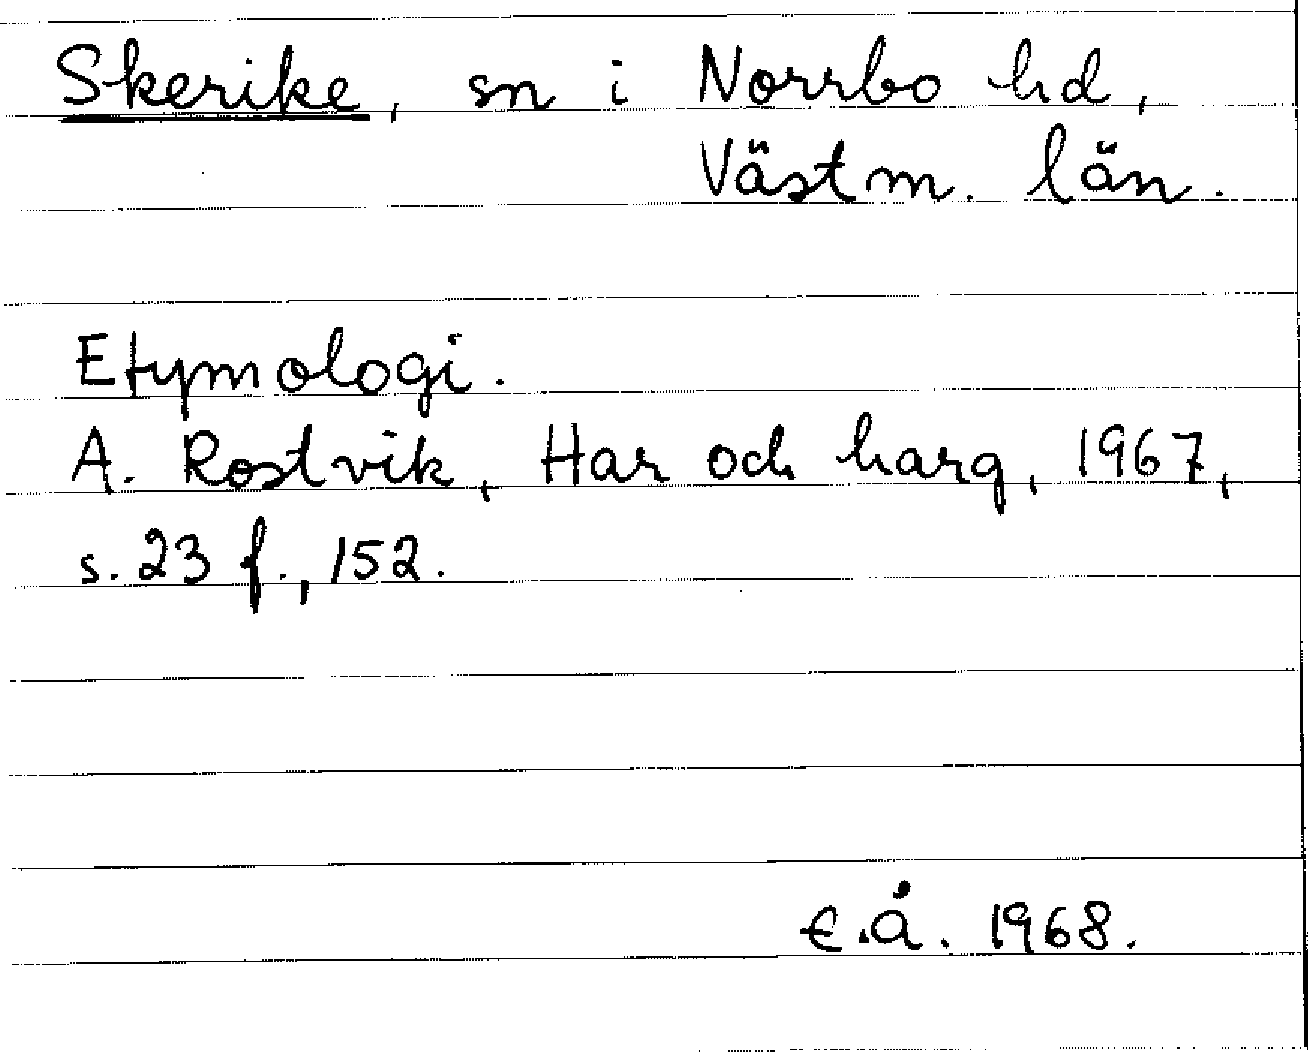 Skerike, sn i Norrbo hd,
Västm. län.
Etymologi.
A. Rostvik, Har och harg, 1967,
s. 23 f., 152.
E.Å. 1968.